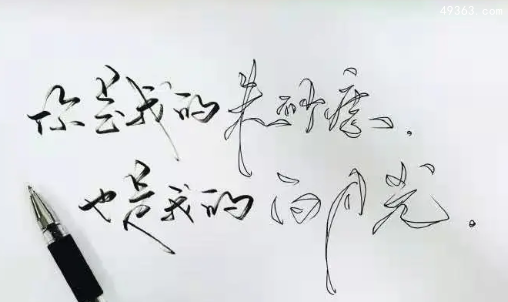 49363.com
你是我的朱砂痣、
也是我的白月光。